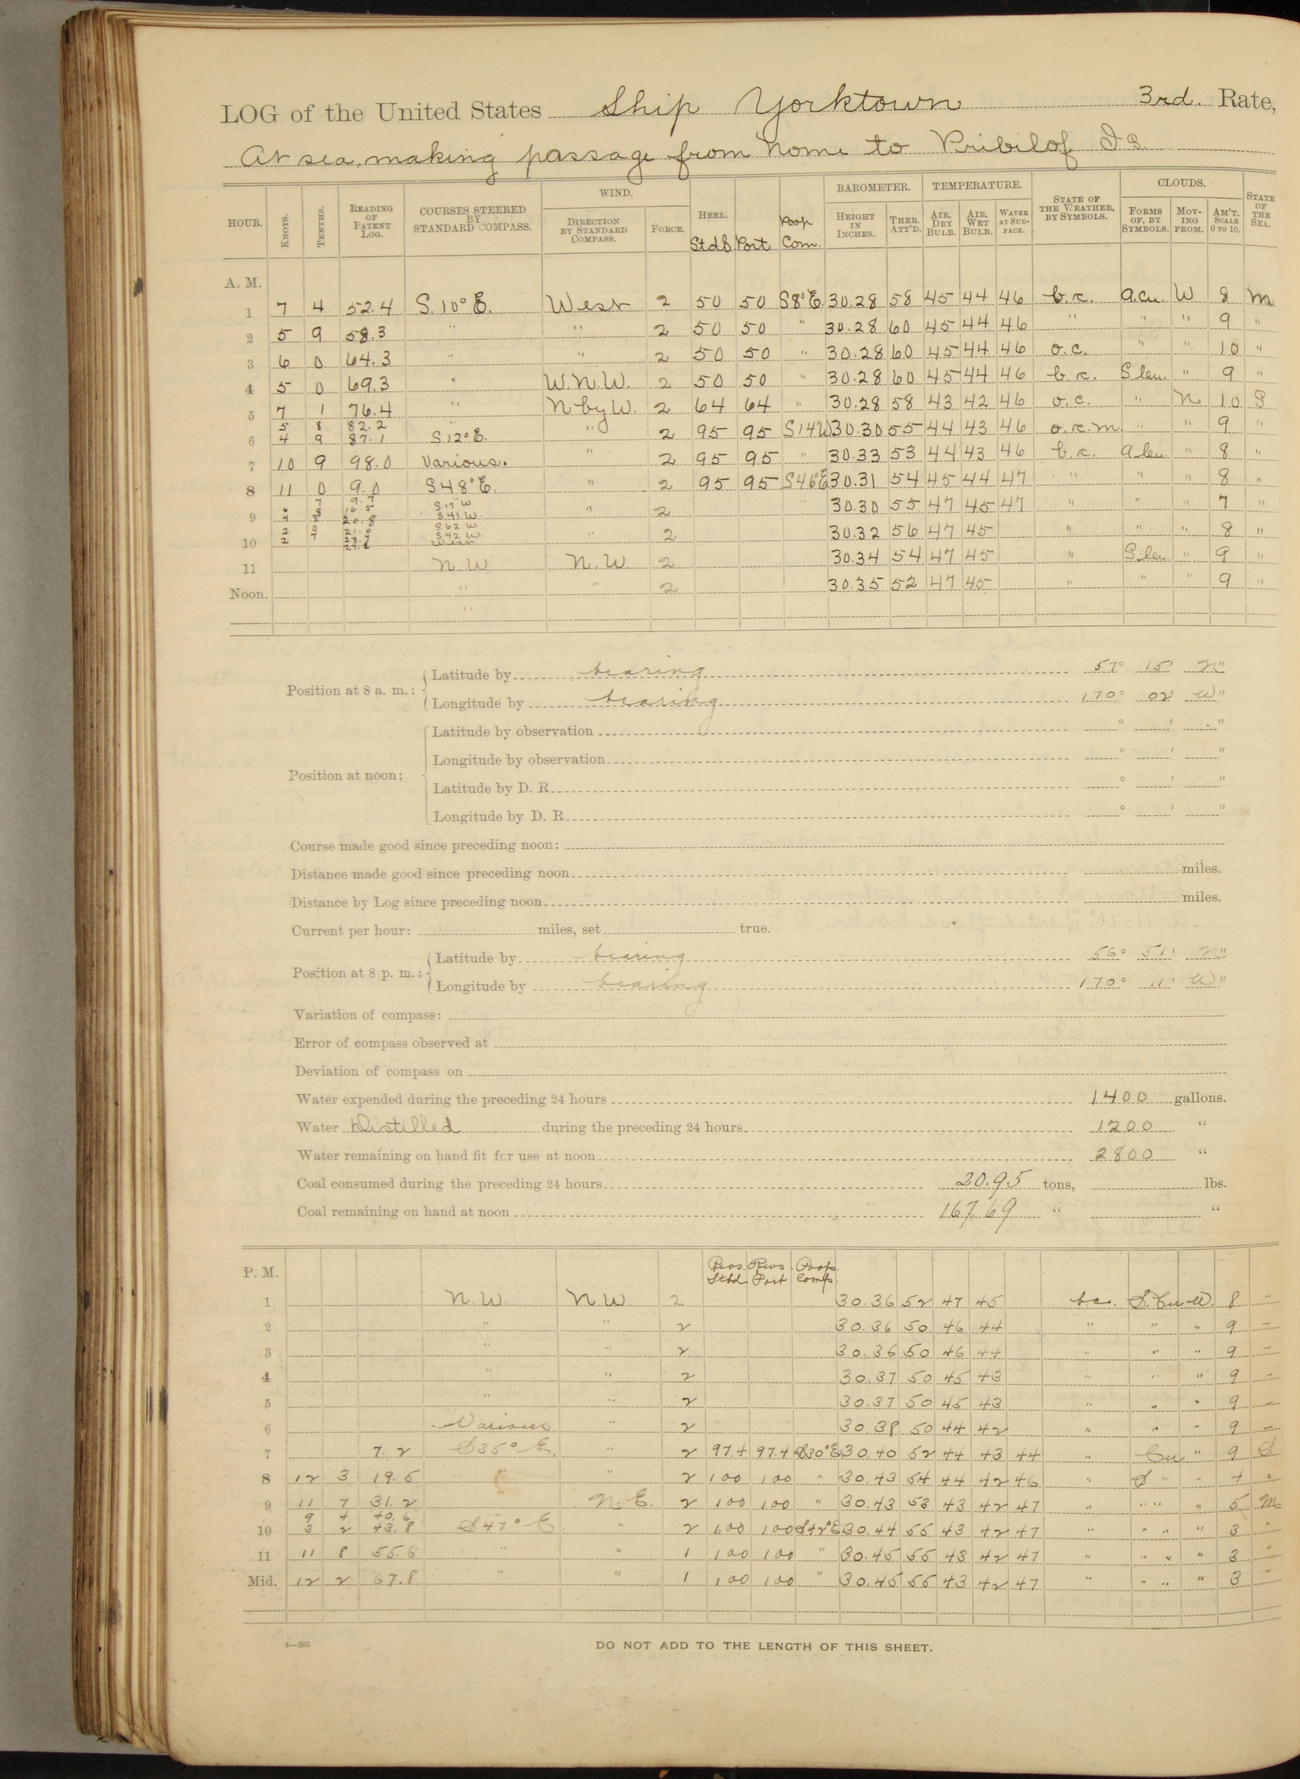 LOG of the United States Ship Yorktown 3rd. Rate,
At sea, making passage from Nome to Pribilof Is
HOUR. KNOTS. TENTHS. READING OF PATENT LOG. COURSES STEERED BY STANDARD COMPASS. WIND. DIRECTION BY STANDARD COMPASS. FORCE. HEEL. Stdb Port Poop Com. BAROMETER. HEIGHT IN INCHES. THER. ATT'D. TEMPERATURE. AIR, DRY BULB. AIR, WET BULB. WATER AT SURFACE. STATE OF THE WEATHER, BY SYMBOLS. CLOUDS. FORMS OF, BY SYMBOLS. MOVING FROM. AM'T. SCALE 0 TO 10. STATE OF THE SEA.
A. M.
1 7 4 52.4 S. 10° E. West 2 50 50 S8°E 30.28 58 45 44 46 b.c. a.cu. W 8 m
2 5 9 58.3 " " 2 50 50 " 30.28 60 45 44 46 " " " 9 "
3 6 0 64.3 " " 2 50 50 " 30.28 60 45 44 46 o.c. " " 10 "
4 5 0 69.3 " W.N.W. 2 50 50 " 30.28 60 45 44 46 b.c. S cu. " 9 "
5 7 1 76.4 " N by W. 2 64 64 " 30.28 58 43 42 46 o.c. " N 10 S
5 8 82.2
6 4 9 87.1 S 12° E. " 2 95 95 S14W 30.30 55 44 43 46 o.c.m " " 9 "
7 10 9 98.0 Various. " 2 95 95 " 30.33 53 44 43 46 b.c. a cu " 8 "
8 11 0 9.0 S 48° E. " 2 95 95 S46°E 30.31 54 45 44 47 " " " 8 "
7 9.7 S 17 W
9 4 3 20.8 S 41 W " 2 30.30 55 47 45 47 " " " 7 "
2 0 S 62 W
10 2 7 S 42 W " 2 30.32 56 47 45 " " " 8 "
West
11 N W N. W 2 30.34 54 47 45 " S cu " 9 "
Noon. " " 2 30.35 52 47 45 " " " 9 "
"
Position at 8 a. m.: Latitude by bearing 57° 15' N"
Longitude by bearing 170° 02' W"
Position at noon: Latitude by observation ° ' "
Longitude by observation ° ' "
Latitude by D. R. ° ' "
Longitude by D. R. ° ' "
Course made good since preceding noon:
Distance made good since preceding noon miles.
Distance by Log since preceding noon miles.
Current per hour: miles, set true.
Position at 8 p. m.: Latitude by bearing 56° 51' N"
Longitude by bearing 170° 11' W"
Variation of compass:
Error of compass observed at
Deviation of compass on
Water expended during the preceding 24 hours 1400 gallons.
Water Distilled during the preceding 24 hours 1200 "
Water remaining on hand fit for use at noon 2800 "
Coal consumed during the preceding 24 hours 20.95 tons, lbs.
Coal remaining on hand at noon 167.69 " "
P. M. Revs. Stbd Revs. Port Poop Comp.
1 N. W. N. W. 2 30.36 52 47 45 bc. S. Cu W. 8 -
2 " " 2 30.36 50 46 44 " " " 9 -
3 " " 2 30.36 50 46 44 " " " 9 -
4 " " 2 30.37 50 45 43 " " " 9 -
5 " " 2 30.37 50 45 43 " " " 9 -
6 Various " 2 30.38 50 44 42 " " " 9 -
7 7.2 S35° E. " 2 97.4 97.4 S30°E 30.40 52 44 43 44 " Cu " 9 S
8 12 3 19.5 " " 2 100 100 " 30.43 54 44 42 46 " S " " 4 "
9 11 7 31.2 " N. E. 2 100 100 " 30.43 53 43 42 47 " " " " 5 m
9 4 40.6
10 3 2 43.8 S47° E " 2 100 100 S42°E 30.44 55 43 42 47 " " " " 3 "
11 11 8 55.6 " " 1 100 100 " 30.45 55 43 42 47 " " " " 3 "
Mid. 12 2 67.8 " " 1 100 100 " 30.45 55 43 42 47 " " " " 3 "
DO NOT ADD TO THE LENGTH OF THIS SHEET.